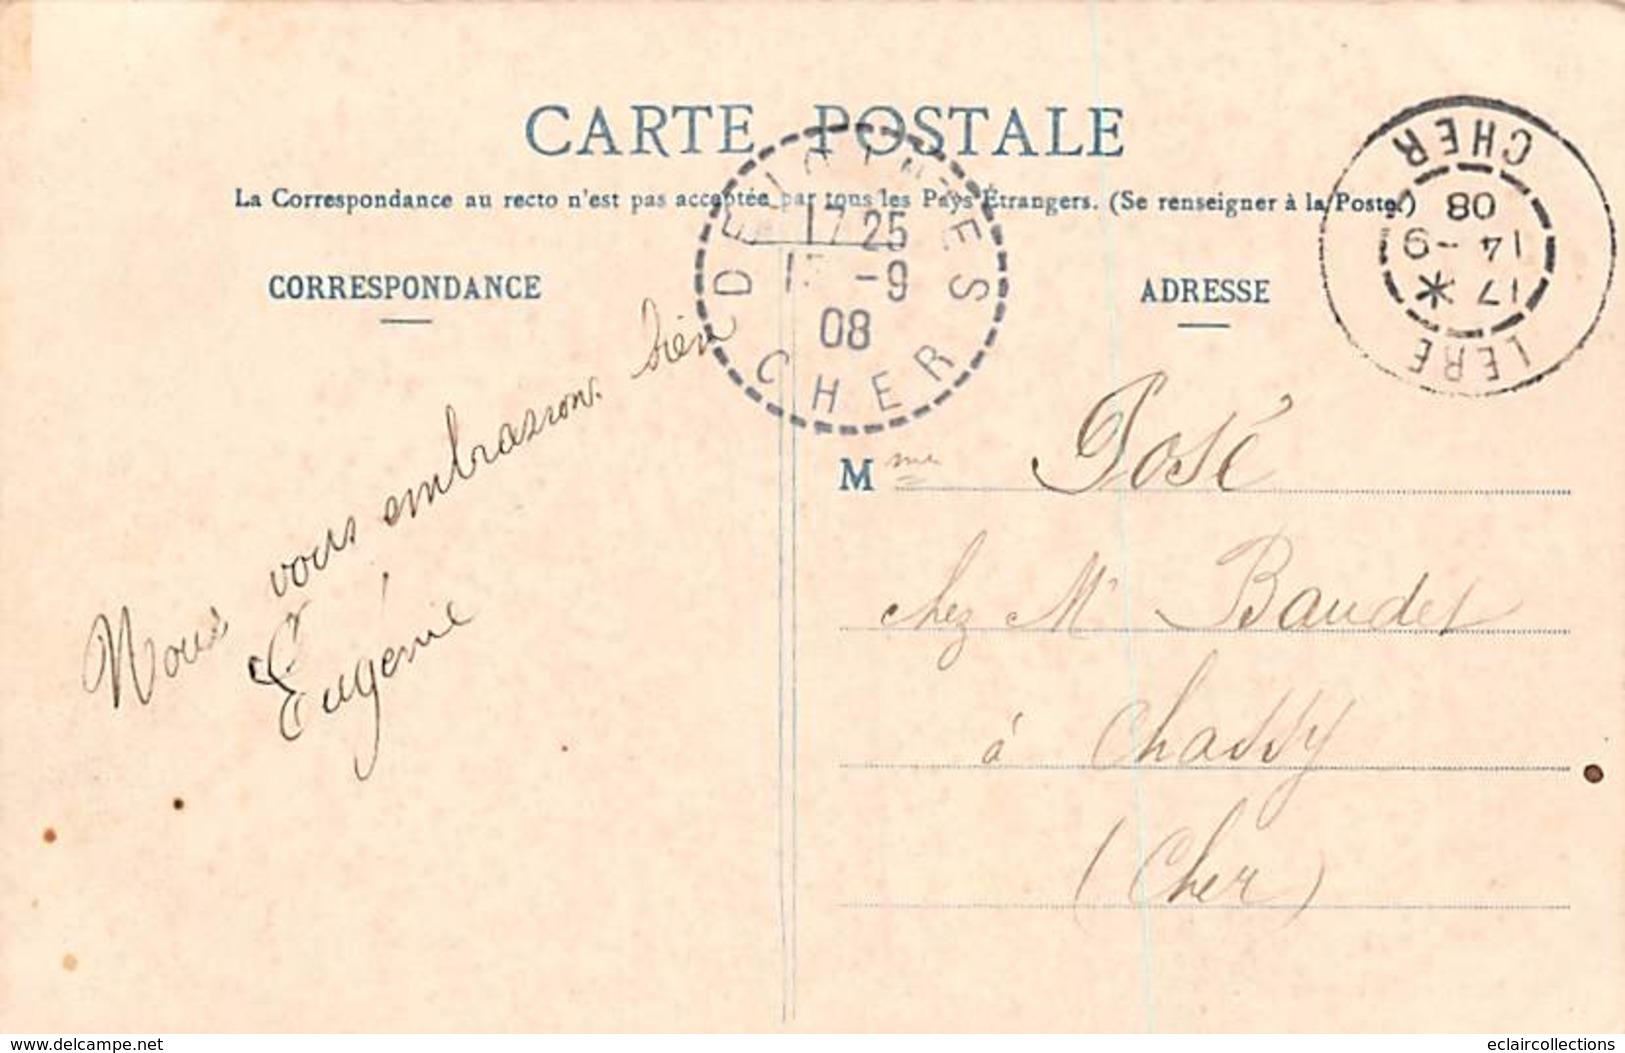 CARTE POSTALE
La Correspondance au recto n'est pas acceptée par tous les Pays Étrangers. (Se renseigner à la Poste.)
CORRESPONDANCE
ADRESSE
17 25
-9
08
CHER
LERE
17 *
14 -9
08
CHER
Nous vous embrassons bien
Eugénie
Mme José
chez Mr Baudet
à Chassy
(Cher)
www.delcampe.net
eclaircollections